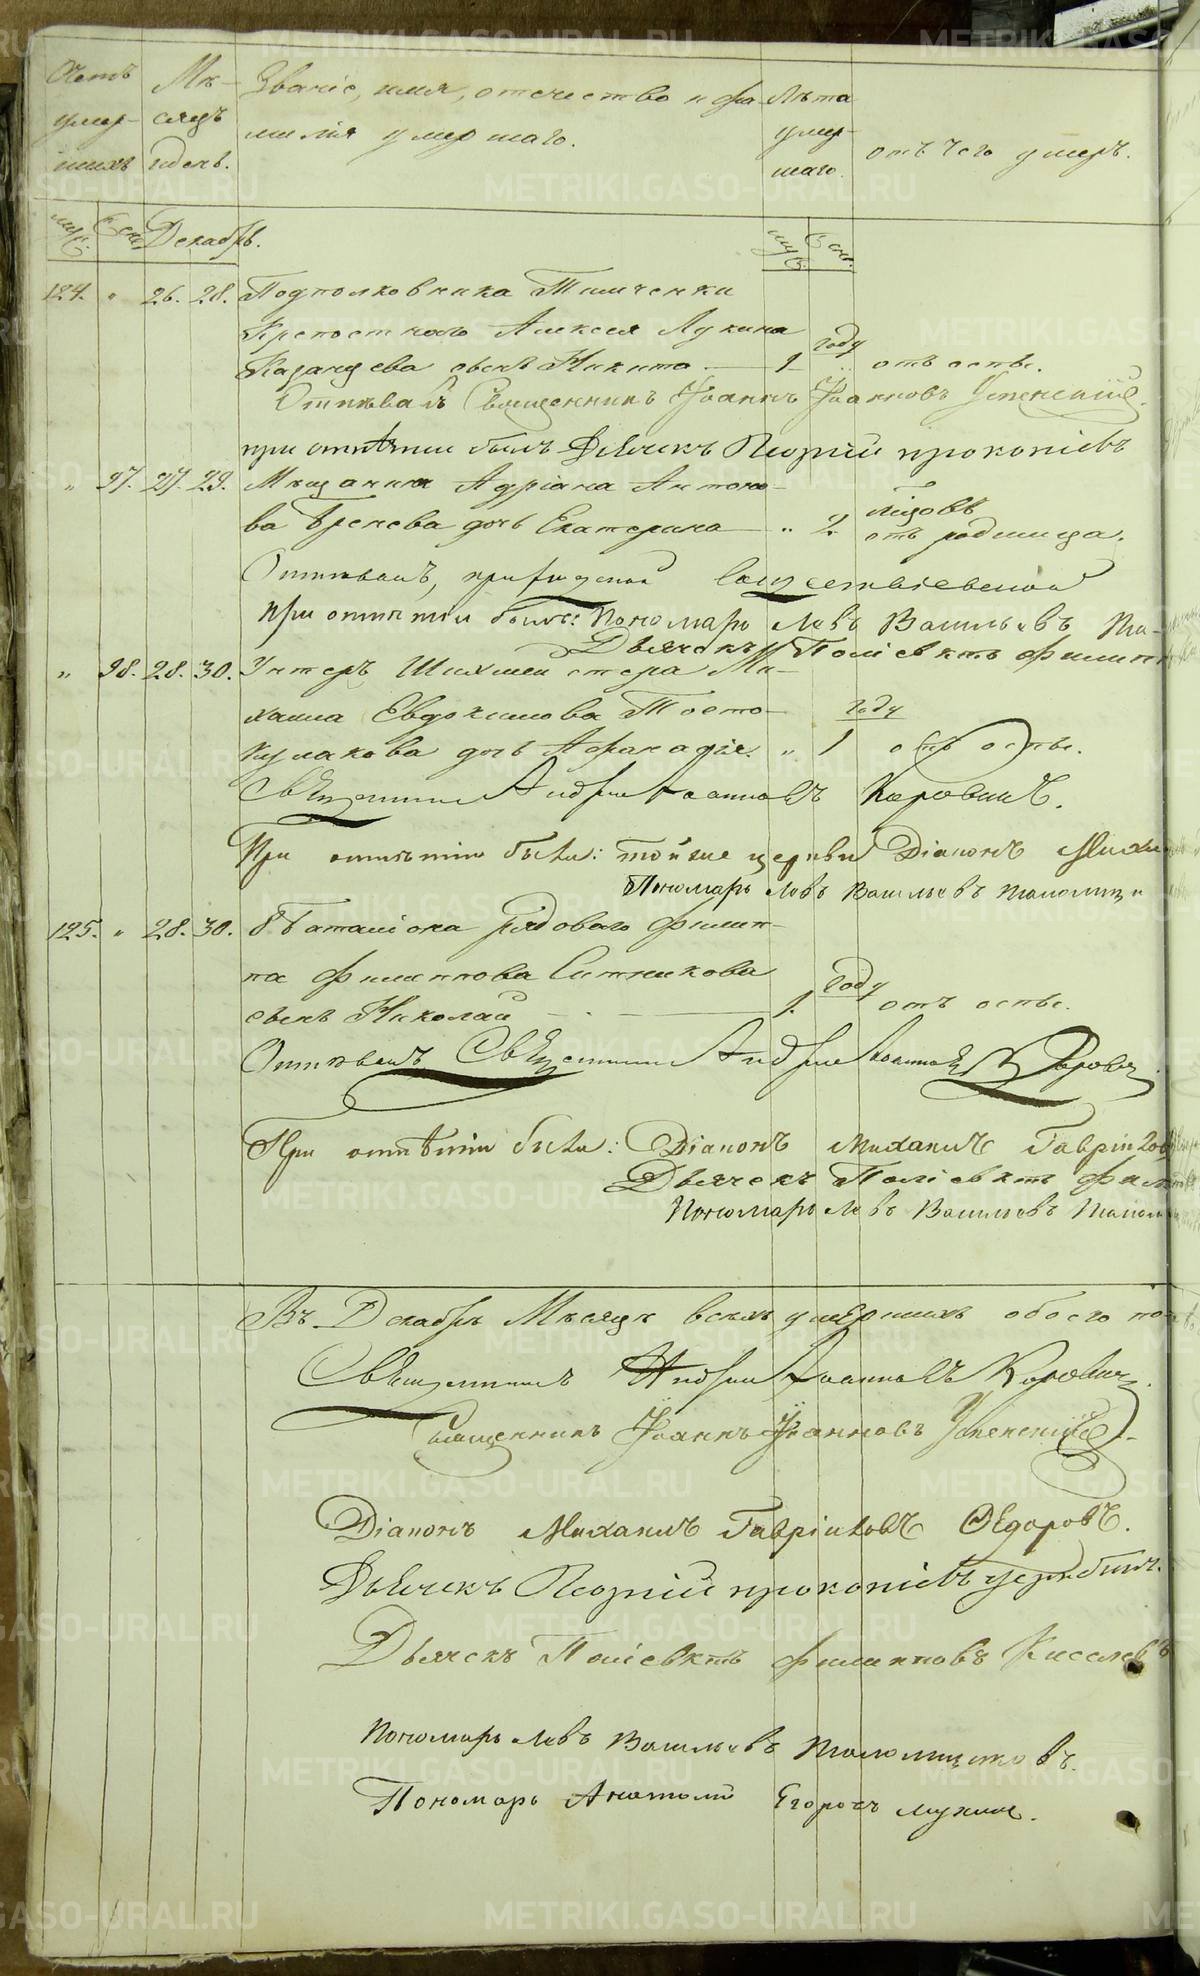 Счетъ умер- шихъ
Мѣ- сяцъ и день.
Званіе, имя, отечество и фа- милія умершаго.
Лѣта умер- шаго.
отъ чего умеръ.
муж: женс: Декабрь. муж: женс:
124. " 26. 28. Подполковника Тимченки
Крепостнаго Алексея Лукина
Казанцева сынъ Никита 1 году отъ оспы.
Отпѣвалъ Священникъ Іоаннъ Іоанновъ Успенскій.
при отпѣтіи былъ Дьячекъ Георгій прокопіевъ
" 97. 27. 29. Мещанина Адріана Антоно-
ва дочь Екатерина " 2. годовъ отъ родимца.
Отпѣвалъ,
При отпѣтіи были: Пономарь Левъ Васильевъ
Дьячекъ Поліевктъ Филипп
" 98. 28. 30. Унтеръ Шихмейстера Ми-
хаила Евдокимова Толсто-
кулакова дочь " 1 году отъ оспы.
Священникъ Андрей Іоанновъ Коровинъ.
При отпѣтіи были: тойже церкви Діаконъ Миха
Пономарь Левъ Васильевъ
125. " 28. 30. 8 Баталіона Рядоваго Филип-
па Филиппова Ситникова
сынъ Николай 1. году отъ оспы.
Отпѣвалъ Священникъ Андрей Іоанновъ Коровин
При отпѣтіи были: Діаконъ Михаилъ Гавріилов
Дьячекъ Поліевктъ Фил
Пономарь Левъ Васильевъ
Въ Декабрѣ Мѣсяцѣ всехъ умершихъ обоего по
Священникъ Андрей Іоанновъ Коровин.
Священникъ Іоаннъ Іоанновъ Успенскій.
Діаконъ Михаилъ Гавріиловъ Ѳедоровъ.
Дьячекъ Георгій прокопіевъ
Дьячекъ Поліевктъ Филипповъ Киселевъ
Пономарь Левъ Васильевъ
Пономарь Анатолій Егоровъ Мухин.
METRIKI.GASO-URAL.RU